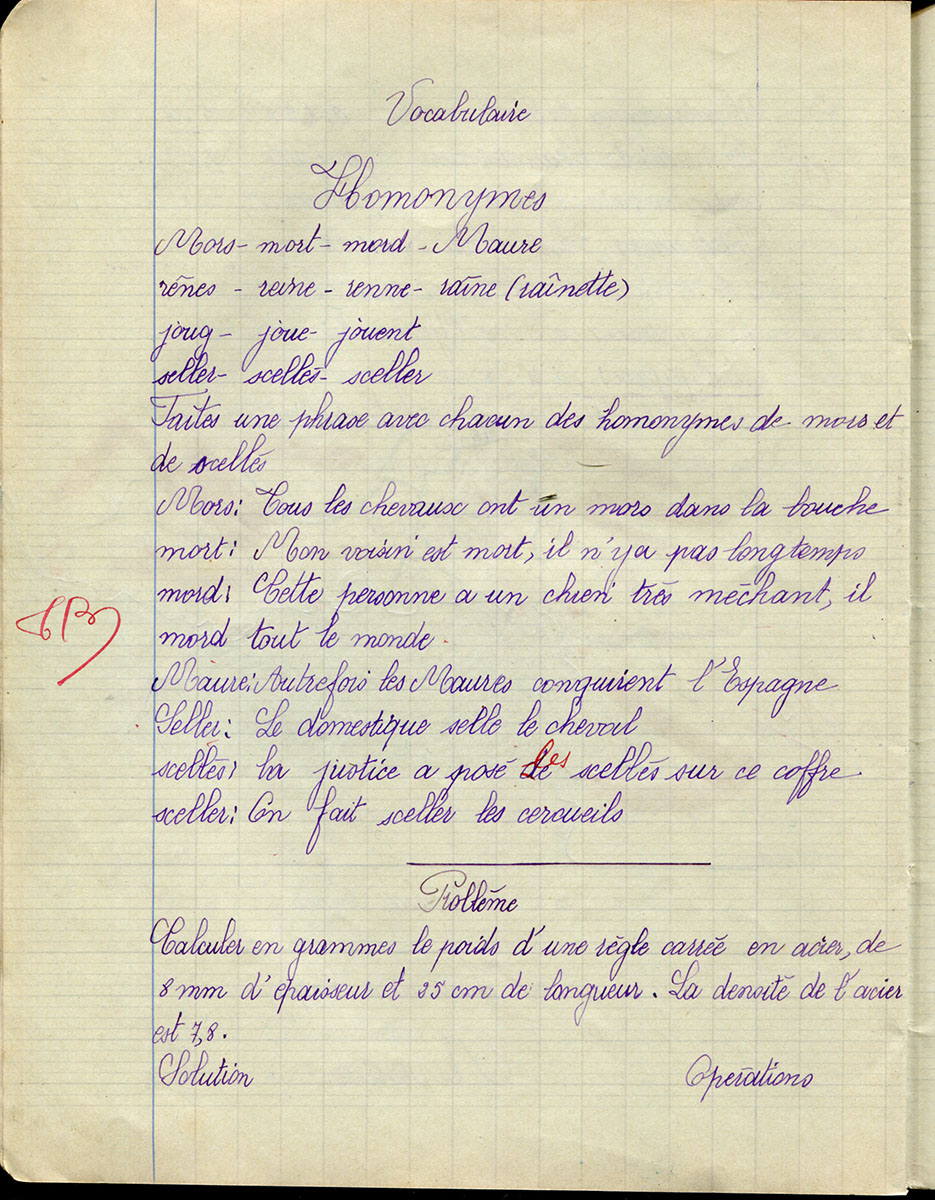 Vocabulaire
Homonymes
Mors - mort - mord - Maure
rênes - reine - renne - raîne (raînette)
joug - joue - jouent
seller - scellés - sceller
Faites une phrase avec chacun des homonymes de mors et
de scellés
Mors: Tous les chevaux ont un mors dans la bouche
mort: Mon voisin est mort, il n'y a pas longtemps
mord: Cette personne a un chien très méchant, il
TB
mord tout le monde.
Maure: Autrefois les Maures conquirent l'Espagne
Seller: Le domestique selle le cheval
scellés: la justice a posé les scellés sur ce coffre.
sceller: On fait sceller les cercueils
Problème
Calculer en grammes le poids d'une règle carrée en acier, de
8 mm d'épaisseur et 25 cm de longueur. La densité de l'acier
est 7,8.
Solution
Opérations